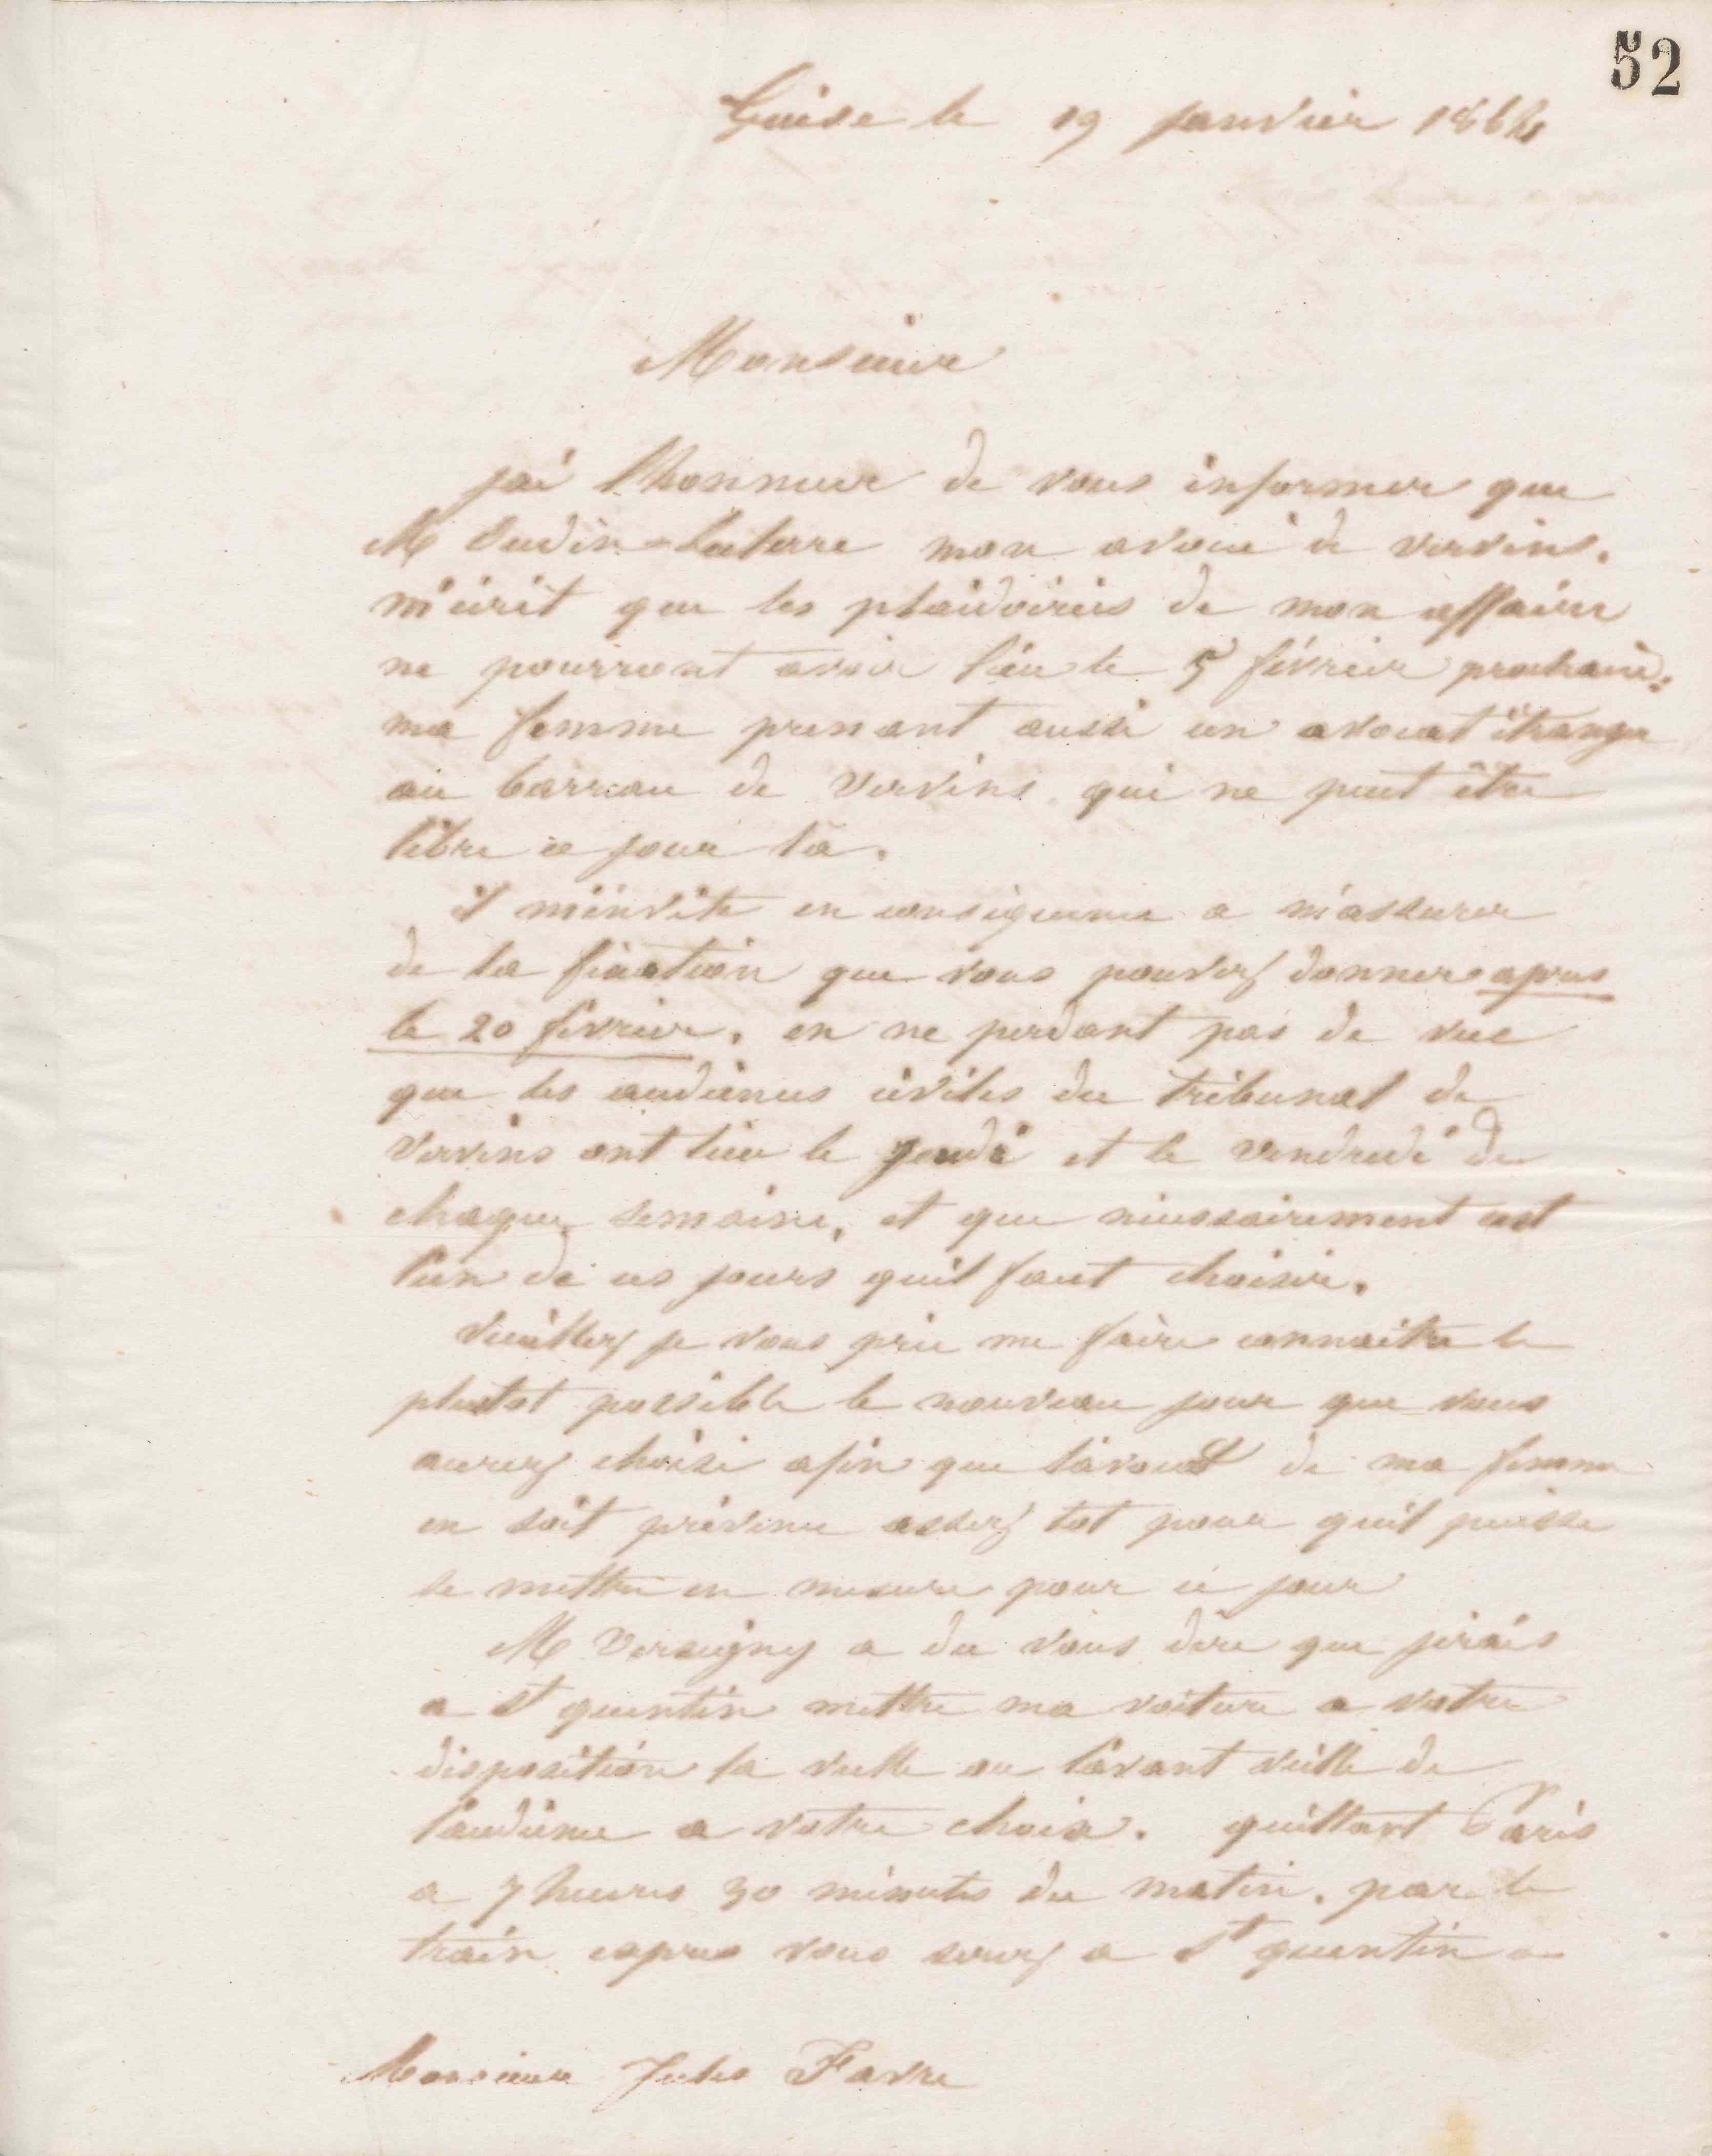 52
Guise le 19 janvier 1864
Monsieur
jai lhonneur de vous informer que
M Oudin-Leclerre mon avoué de vervins.
m'écrit que les plaidoiries de mon affaire
ne pourront avoir lieu le 5 février prochain.
ma femme prenant aussi un avocat étranger
au barreau de Vervins qui ne peut être
libre ce jour là.
il m'invite en conséquence a m'assurer
de la fixation que vous pouvez donner apres
le 20 février, en ne perdant pas de vue
que les audiences civiles du tribunal de
Vervins ont lieu le jeudi et le vendredi de
chaque semaine, et que nécessairement cest
l'un de ces jours quil faut choisir.
Veuillez je vous prie me faire connaitre le
plustot possible le nouveau jour que vous
aurez choisi afin que l'avocat de ma femme
en soit prévenu assez tot pour quil puisse
se mettre en mesure pour ce jour
M Versigny a du vous dire que jirais
a St quentin mettre ma voiture a votre
disposition la veille ou l'avant veille de
l'audience a votre choix. quittant Paris
a 7 heures 30 minutes du matin. par le
train express vous serez a St quentin a
Monsieur Jules Favre